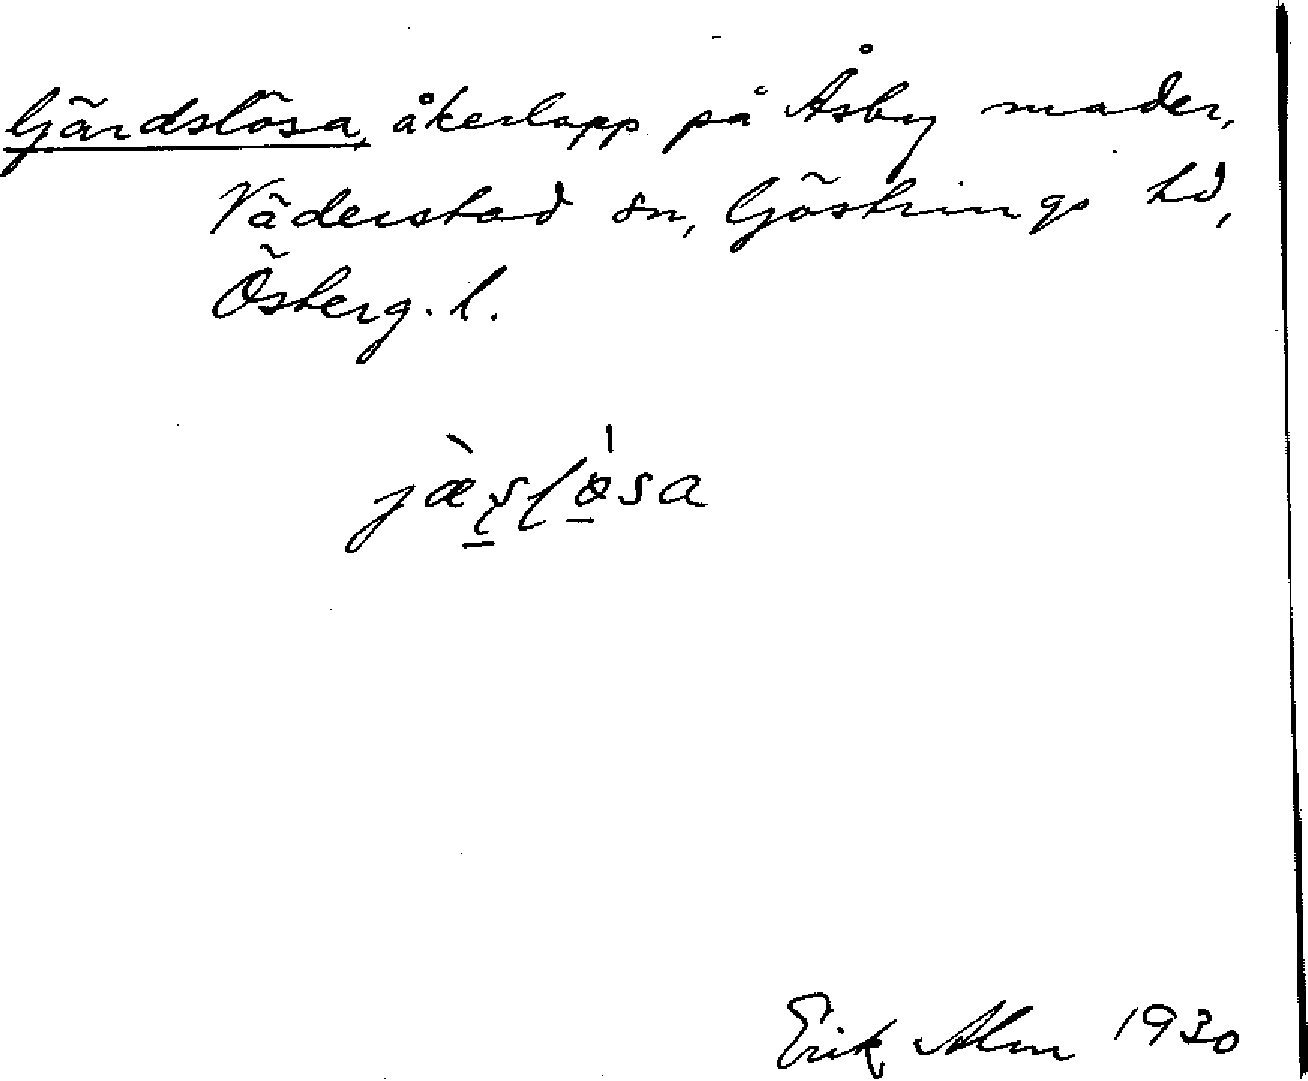 Gärdslösa, åkerlapp på Åsby mader,
Väderstad sn, Göstrings hd,
Österg. l.
jæ̀ʂlø̀sa
Erik Alm 1930